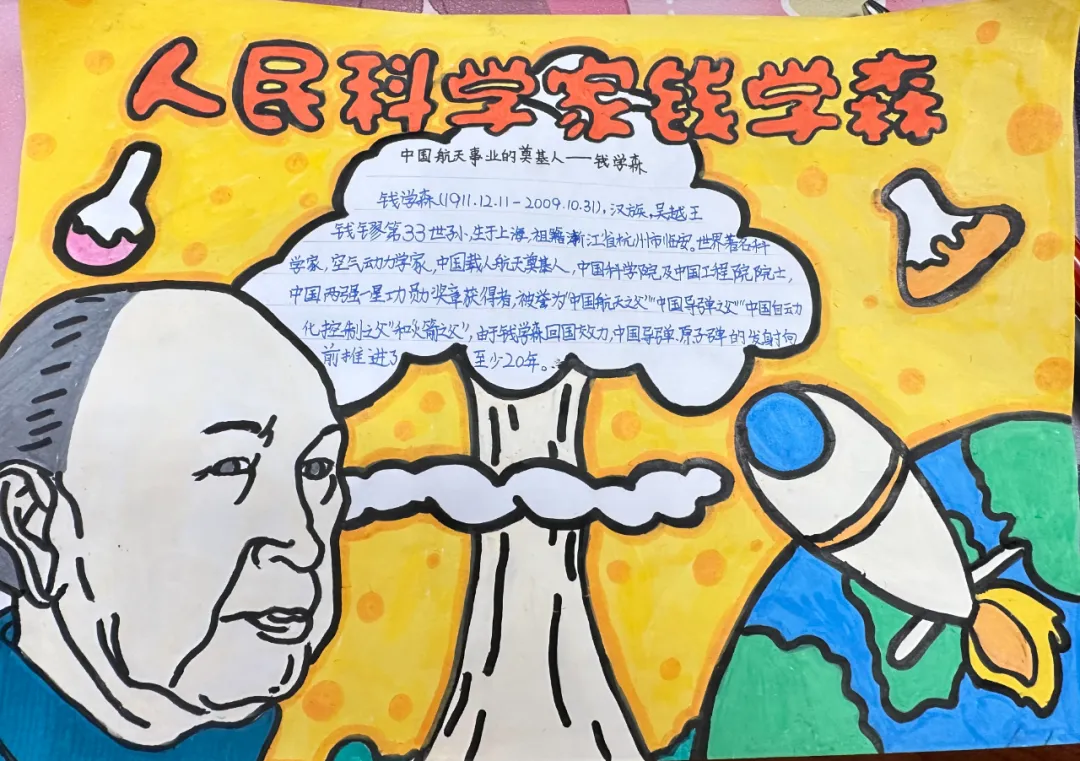 人民科学家钱学森
中国航天事业的奠基人——钱学森
钱学森(1911.12.11-2009.10.31),汉族,吴越王
钱镠第33世孙,生于上海,祖籍浙江省杭州市临安。世界著名科
学家,空气动力学家,中国载人航天奠基人,中国科学院及中国工程院院士,
中国两弹一星功勋奖章获得者,被誉为"中国航天之父""中国导弹之父""中国自动
化控制之父"和"火箭之父",由于钱学森回国效力,中国导弹、原子弹的发射向
前推进了至少20年。